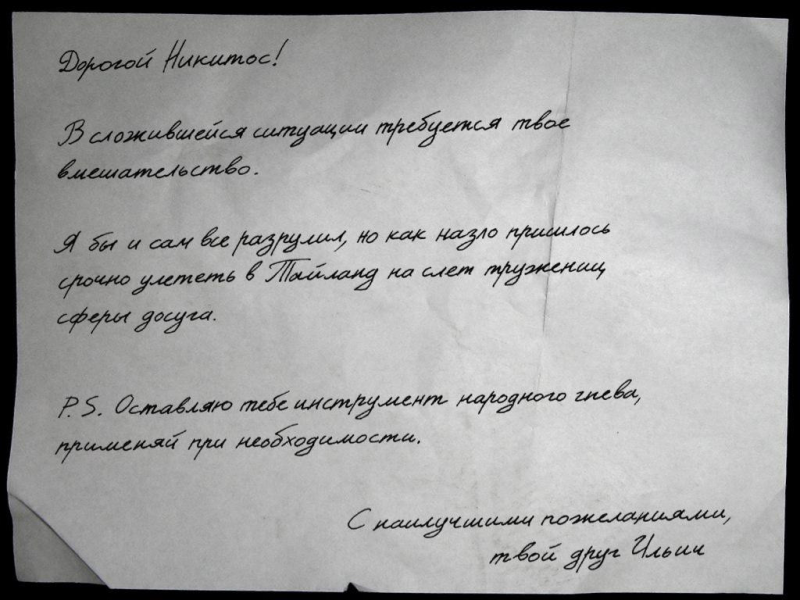 Дорогой Никитос!
В сложившейся ситуации требуется твое
вмешательство.
Я бы и сам все разрулил, но как назло пришлось
срочно улететь в Тайланд на слет тружениц
сферы досуга.
P.S. Оставляю тебе инструмент народного гнева,
применяй при необходимости.
С наилучшими пожеланиями,
твой друг Ильич